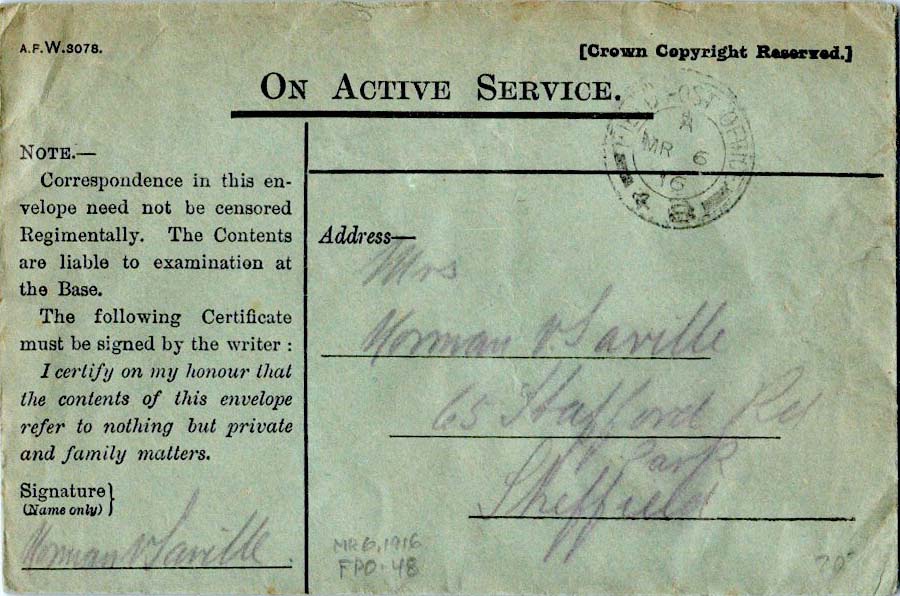 A.F.W.3078.
[Crown Copyright Reserved.]
ON ACTIVE SERVICE.
FIELD POST OFFICE
A
MR 6
16
NOTE.—
Correspondence in this en-
velope need not be censored
Regimentally. The Contents
are liable to examination at
the Base.
The following Certificate
must be signed by the writer :
I certify on my honour that
the contents of this envelope
refer to nothing but private
and family matters.
Signature}
(Name only)
Norman V Saville
Address—
Mrs
Norman V Saville
65 Stafford Rd
Park
Sheffield
MR 6.1916
FPO-48